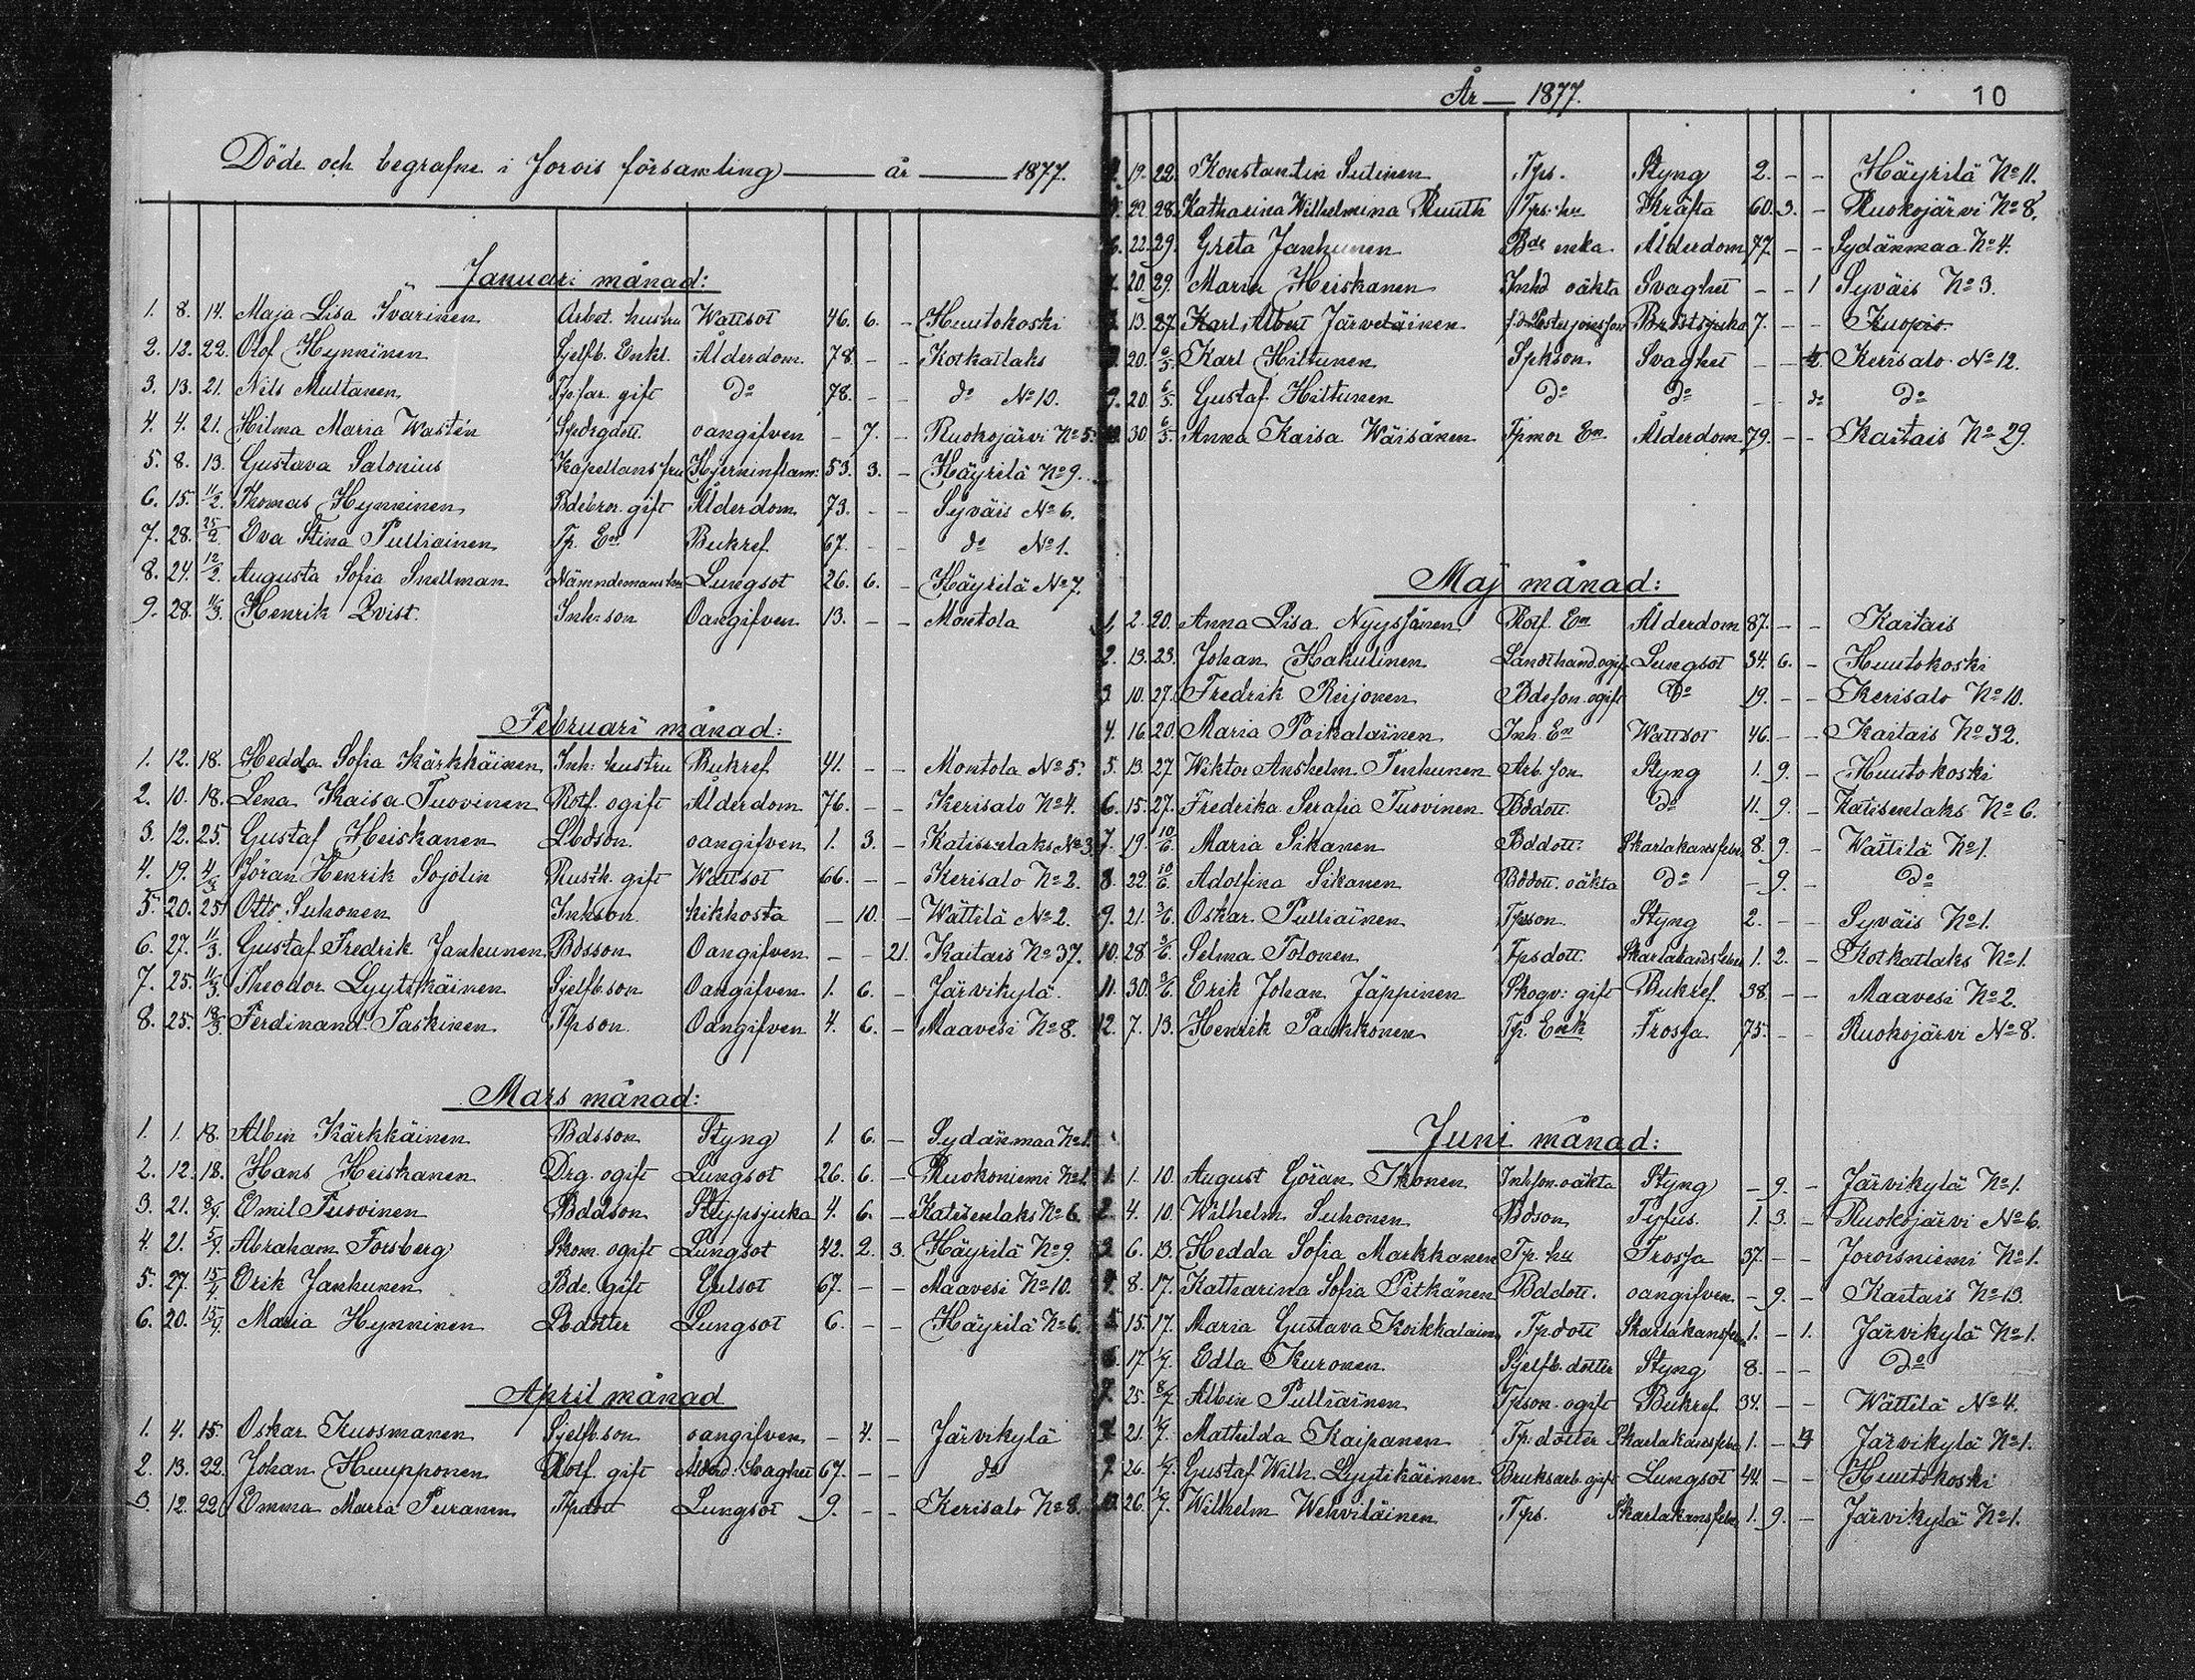 Döde och begrafne i Jorois församling — år — 1877.
Januari månad:
1. 8. 14. Maja Lisa Ivarinen Arbet. hustru Wattsot 46. 6. - Huutokoski
2. 12. 22. Olof Hynninen Sjelfb. Enkl. Ålderdom. 78. - - Kotkatlaks
3. 13. 21. Nils Multanen Tpsfar. gift do 78. - - do No 10.
4. 4. 21. Hilma Maria Wastén oangifven - 7. - Ruokojärvi No 5.
5. 8. 13. Gustava Salonius Kapellans fru Hjerninflam: 53. 3. - Häyrilä No 9.
6. 15. 11/2. Thomas Hynninen Bdebror. gift Ålderdom 73. - - Syväis No 6.
7. 28. 25/2. Eva Stina Pulliainen Tp. En Bukref 67. - - do No 1.
8. 24. 12/2. Augusta Sofia Snellman Nämndemans hu Lungsot 26. 6. - Häyrilä No 7.
9. 28. 11/3. Henrik Qvist. Inh: son Oangifven 13. - - Montola
Februari månad:
1. 12. 18. Hedda Sofia Kärkkäinen Inh: hustru Bukref 41. - - Montola No 5.
2. 10. 18. Lena Kaisa Tuovinen Rotf. ogift Ålderdom 76. - - Kerisalo No 4.
3. 12. 25. Gustaf Heiskanen Lbdson. oangifven 1. 3. - Katisenlaks No 3.
4. 19. 4/3. Jöran Henrik Sojolin Rusth. gift Wattsot 66. - - Kerisalo No 2.
5. 20. 25. Otto Suhonen Inhson kikhosta - 10. - Wättilä No 2.
6. 27. 11/3. Gustaf Fredrik Janhunen Bdsson Oangifven - - 21. Kaitais No 37.
7. 25. 11/3. Theodor Lyytikäinen Sjelfb.son Oangifven 1. 6. - Järvikylä.
8. 25. 18/3. Ferdinand Taskinen Tpson. Oangifven 4. 6. - Maavesi No 8.
Mars månad:
1. 1. 18. Albin Kärkkäinen Bdsson Styng 1. 6. - Sydänmaa No 1.
2. 12. 18. Hans Heiskanen Drg. ogift Lungsot 26. 6. - Ruokoniemi No 1.
3. 21. 8/4. Emil Tuovinen Bddson Strypsjuka 4. 6. - Katisenlaks No 6.
4. 21. 5/4. Abraham Forsberg Skom. ogift Lungsot 42. 2. 3. Häyrilä No 9.
5. 27. 15/4. Erik Janhunen Bde. gift Gulsot 67. - - Maavesi No 10.
6. 20. 15/4. Maria Hynninen Lbdotter Lungsot 6. - - Häyrilä No 6.
April månad
1. 4. 15. Oskar Kuosmanen Sjelfb.son oangifven - 4. - Järvikylä
2. 13. 22. Johan Huupponen Rotf. gift Ålderd: Svaghet 67. - - do
3. 12. 22. Emma Maria Puranen Tpdott Lungsot 9. - - Kerisalo No 8.
År — 1877.
10
4. 19. 22. Konstantin Sutinen Tps. Styng 2. - - Häyrilä No 11.
5. 22. 28. Katharina Wilhelmina Ruuth Tps: hu Kräfta 60. 3. - Ruokojärvi No 8.
6. 22. 29. Greta Janhunen Bde enka. Ålderdom 77. - - Sydänmaa No 4.
7. 20. 29. Maria Heiskanen Inhd oäkta Svaghet - - 1 Syväis No 3.
13. 27. Karl Albert Järveläinen Bröstsjuka 7. - - Kuopio
8. 20. 6/5. Karl Hiltunen Spkson Svaghet - - Kerisalo No 12.
9. 20. 6/5. Gustaf Hiltunen do do - - do do
10. 30. 6/5. Anna Kaisa Wäisänen Tpmor En. Ålderdom 79. - - Kaitais No 29.
Maj månad:
1. 2. 20. Anna Lisa Nyyssönen Rotf. En Ålderdom 87. - - Kaitais
2. 13. 23. Johan Hakulinen Landthand. ogift Lungsot 34. 6. - Huutokoski
3. 10. 27. Fredrik Reijonen Bdeson. ogift do 19. - - Kerisalo No 10.
4. 16. 20. Maria Poikalainen Inh. En Wattsot 46. - - Kaitais No 32.
5. 13. 27. Wiktor Anshelm Tenhunen Arb. son Styng 1. 9. - Huutokoski
6. 15. 27. Fredrika Serafia Tuovinen Bddott. do 11. 9. - Katisenlaks No 6.
7. 19 10/6. Maria Sikanen Bddott: Skarlakansfeber 8. 9. - Wättilä No 1.
8. 22. 10/6. Adolfina Sikanen Bddott. oäkta do - 9. - do
9. 21. 3/6. Oskar Pulliainen Tpson. Styng 2. - - Syväis No 1.
10. 28. 3/6. Selma Tolonen Tpsdott. Skarlakansfeber 1. 2. - Kotkatlaks No 1.
11. 30. 3/6. Erik Johan Jäppinen Skogv: gift Bukref 38. - - Maavesi No 2.
12. 7. 13. Henrik Paukkonen Tp. Enk Frossa 75. - - Ruokojärvi No 8.
Juni månad:
1. 1. 10. August Göran Ikonen Inhson. oäkta Styng - 9. - Järvikylä No 1.
2. 4. 10. Wilhelm Suhonen Bdson Tyfus. 1. 3. - Ruokojärvi No 6.
3. 6. 13. Hedda Sofia Markkanen Tp. hu Frossa 37. - - Joroisniemi No 1.
4. 8. 17. Katharina Sofia Pitkänen Bddott. oangifven - 9. - Kaitais No 13.
5. 15. 17. Maria Gustava Koikkalain Tpdott Skarlakansfeber 1. - 1. Järvikylä No 1.
6. 17. 1/7. Edla Kuronen Sjelfb. dotter Styng 8. - - do
7. 25. 8/7. Albin Pulliainen Tpson. ogift Bukref 34. - - Wättilä No 4.
8. 21. 1/7. Mathilda Kaipanen Tp: dotter Skarlakansfeber 1. - Järvikylä No 1.
9. 26. 1/7. Gustaf Wilh. Lyytikäinen Bruksarb. gift Lungsot 44. - - Huutokoski
10. 26. 1/7. Wilhelm Wehviläinen Tps. Skarlakansfeber 1. 9. - Järvikylä No 1.